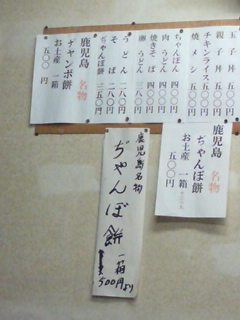 玉子丼
親子丼
チキンライス 五〇〇円
焼メシ 五〇〇円
ちゃんぽん 四〇〇円
肉うどん 四〇〇円
焼きそば 四〇〇円
卵うどん
うどん 二八〇円
そば 二八〇円
ぢゃんぼ餅 三五〇円
鹿児島 名物
ヂヤンボ餅
お土産 一箱
五〇〇円
鹿児島 名物
ぢゃんぼ餅
お土産 一箱
五〇〇円
鹿児島名物
ぢゃんぼ餅
一箱
500円より